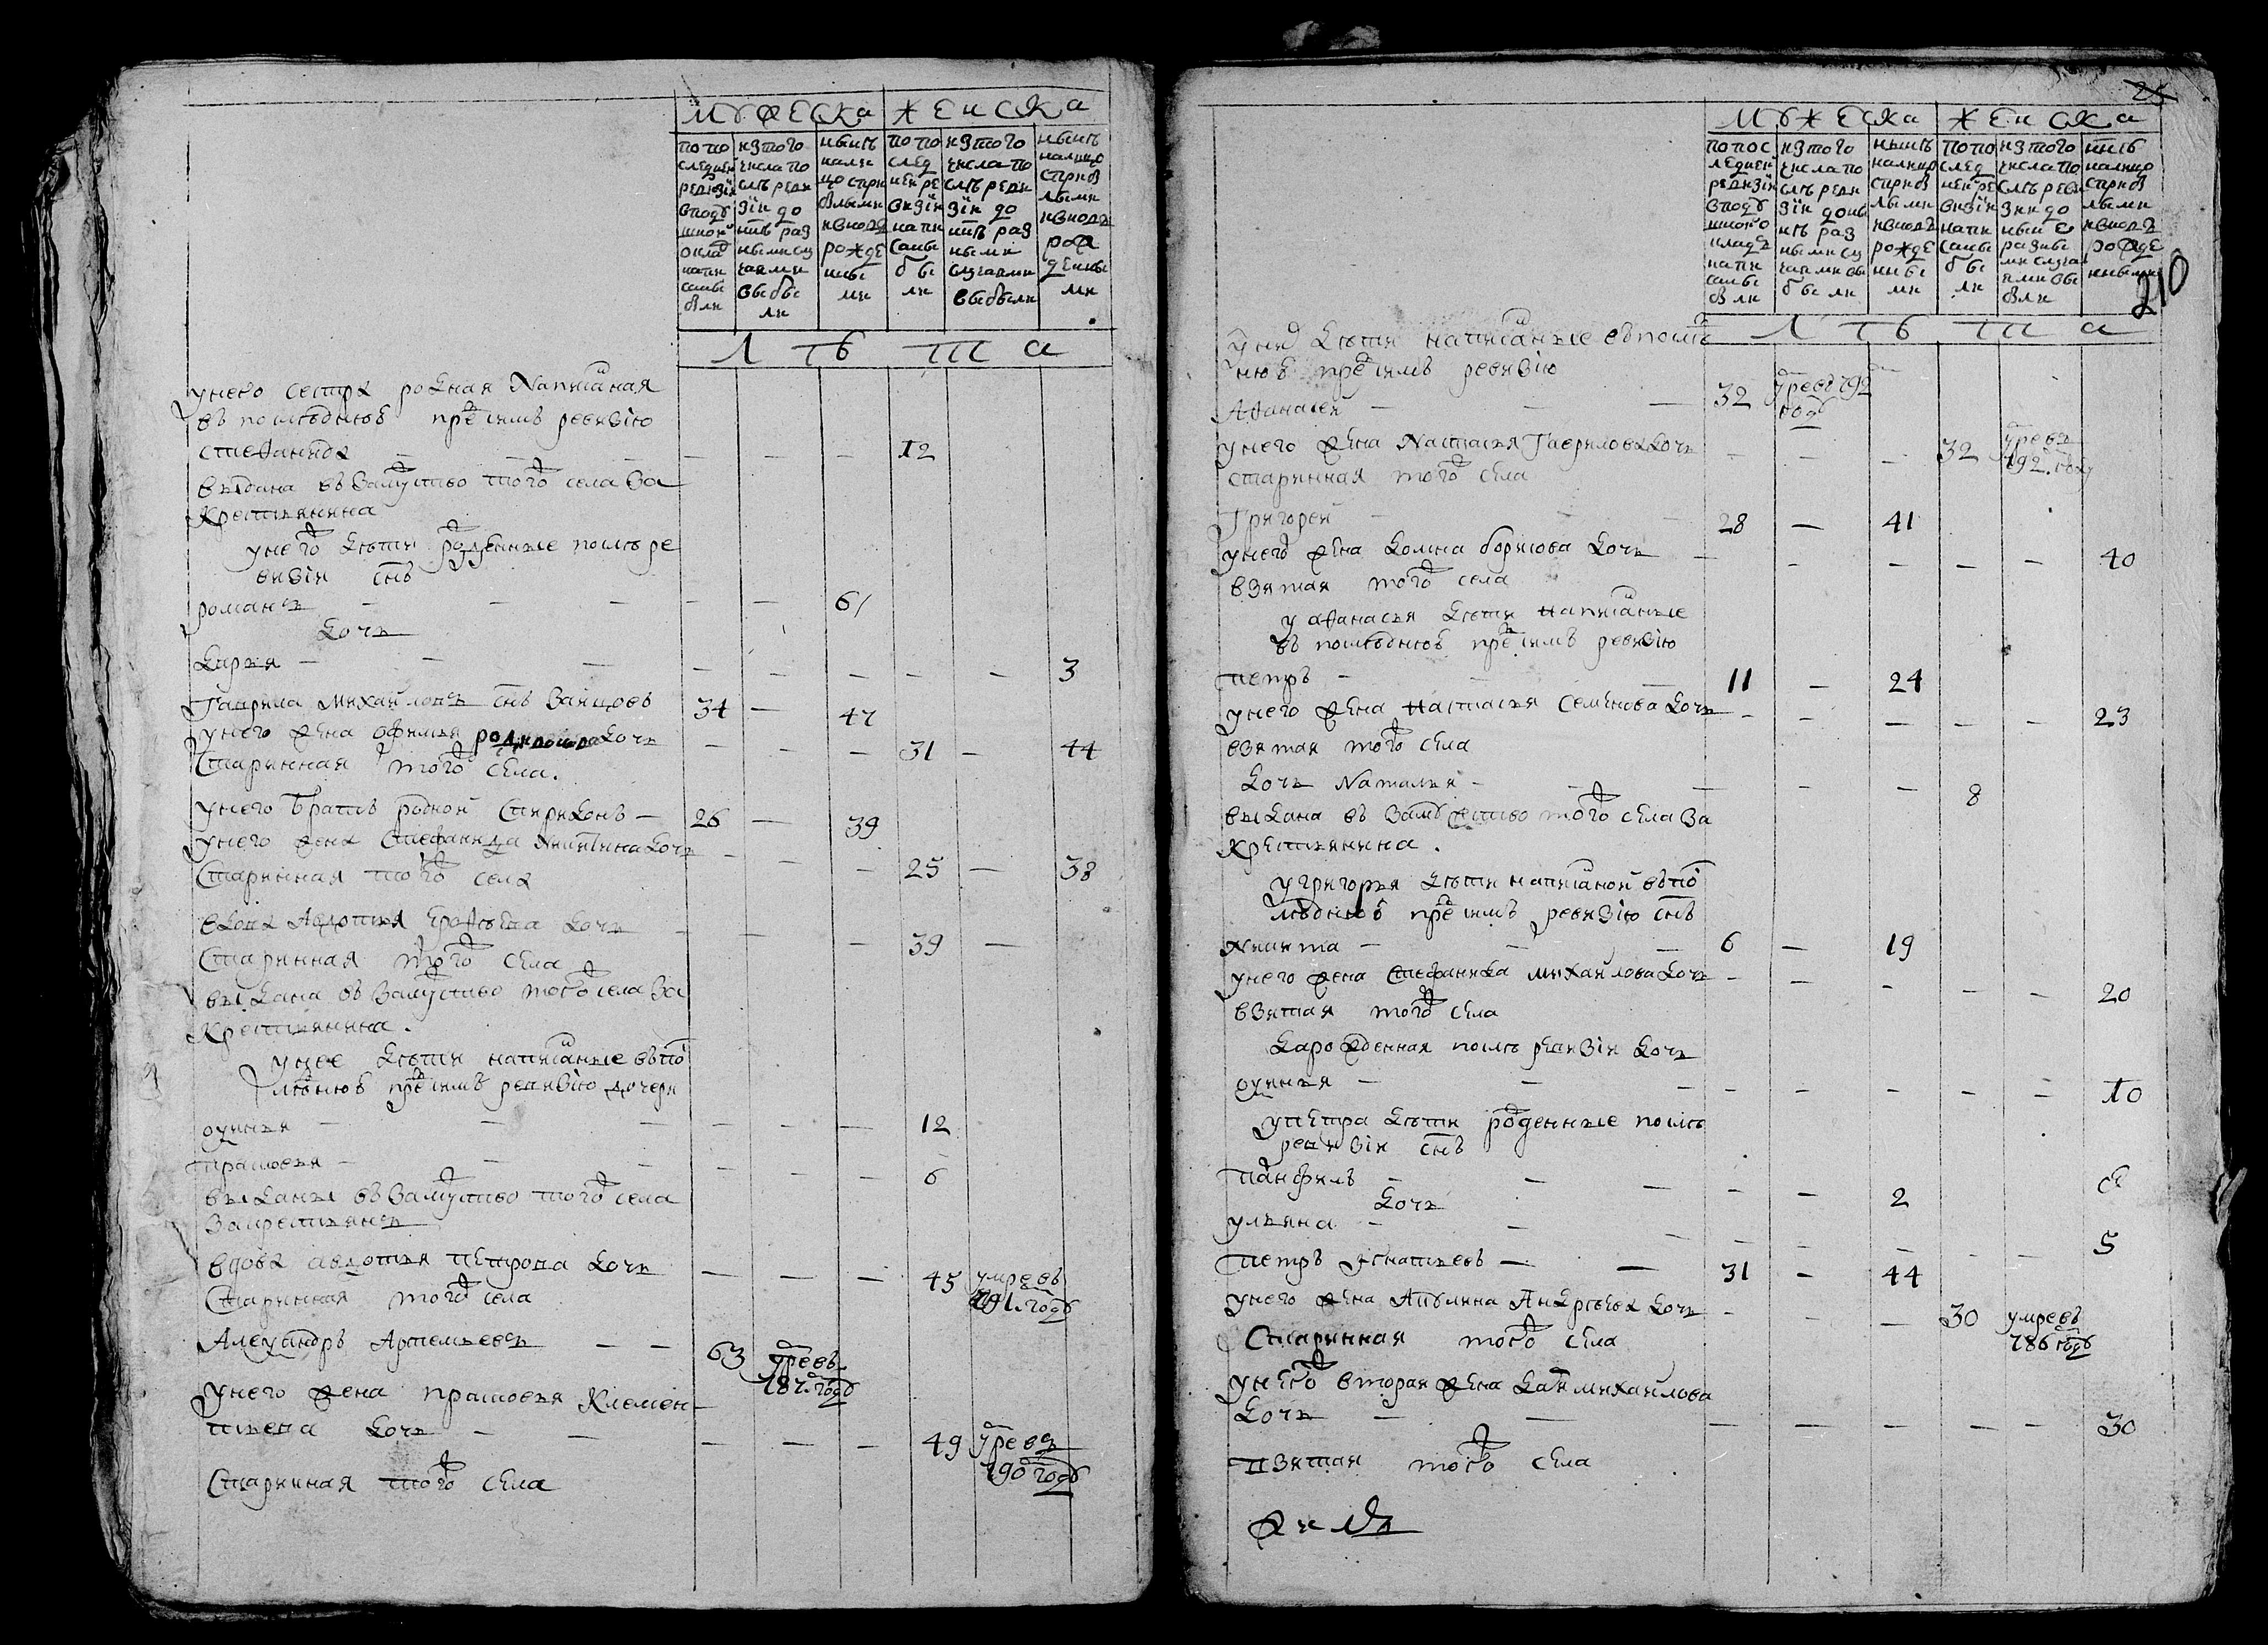 МУЖЕСКА ЖЕНСКА
по последней ревизии в подушной оклад написаны были
из того числа после ревизии до ныне разными случаями выбыли
ныне налицо с прибылыми и вновь рожденными
по последней ревизии написаны были
из того числа после ревизии до ныне разными случаями выбыли
ныне налицо с прибылыми и вновь рожденными
ЛѢТА
у него сестра родная написаная
въ последнюю пред симъ ревизию
стефанида — — — — — — 12
выдана въ замужство того села за
крестьянина
у него дѣти рожденные после ре
визiи снъ
романъ — — — — — 61
дочь
дарья — — — — — — — — 3
Гаврила михайловъ снъ Зайцовъ 34 — 47
у него жена офимья родионова дочь — — — 31 — 44
старинная того села.
у него братъ родной спиридонъ — 26 — 39
у него жена стефанида никитина дочь — — — 25 — 38
старинная того села
вдова Авдотья ерофѣева дочь — — — 39 —
старинная того села
выдана въ замужство того села за
крестьянина.
у нее дѣти написаные въ по
следнюю пред симъ ревизию дочери
оуинья — — — — — — 12
прасковья — — — — — — 6
выданы въ замужство того села
за крестьянъ
вдова авдотья петрова дочь — — — 45 умре въ
старинная того села 791. году
Алеѯандръ Артемьевъ — — 63 умре въ
787. году
у него жена прасковья Клемен
тьева дочь — — — — — 49 умре въ
790 году
старинная того села
25
210
МУЖЕСКА ЖЕНСКА
по последней ревизии в подушной оклад написаны были
из того числа после ревизии до ныне разными случаями выбыли
ныне налицо с прибылыми и вновь рожденными
по последней ревизии написаны были
из того числа после ревизии до ныне разными случаями выбыли
ныне налицо с прибылыми и вновь рожденными
ЛѢТА
у него дѣти написаные въ послѣд
нюю пред симъ ревизию
Афанасей — — — 32 умре въ 792 году
у него жена Настасья Гаврилова дочь — — — 32 умре въ
старинная того села 792. году
Григорей — — 28 — 41
у него жена домна борисова дочь — — — — — 40
взятая того села
у афанасья дѣти написаные
въ последнюю пред симъ ревизию
петръ — — — 11 — 24
у него жена настасья семенова дочь — — — — — 23
взятая того села
дочь Наталья — — — — — 8
выдана въ замужство того села за
крестьянина.
у григорья дѣти написаной въ по
следнюю пред симъ ревизию снъ
никита — — — 6 — 19
у него жена стефанида михайлова дочь — — — — — 20
взятая того села
да рожденная после ревизiи дочь
оуинья — — — — — — — — 10
у петра дѣти рожденные после
ревизiи снъ
панфилъ — — — — — 2
дочь
ульяна — — — — — — — — 5
петръ игнатьевъ — — 31 — 44
у него жена Акулина Андрѣева дочь — — — 30 умре въ
старинная того села 786 году
у него вторая жена михайлова
дочь — — — — — — — 30
взятая того села